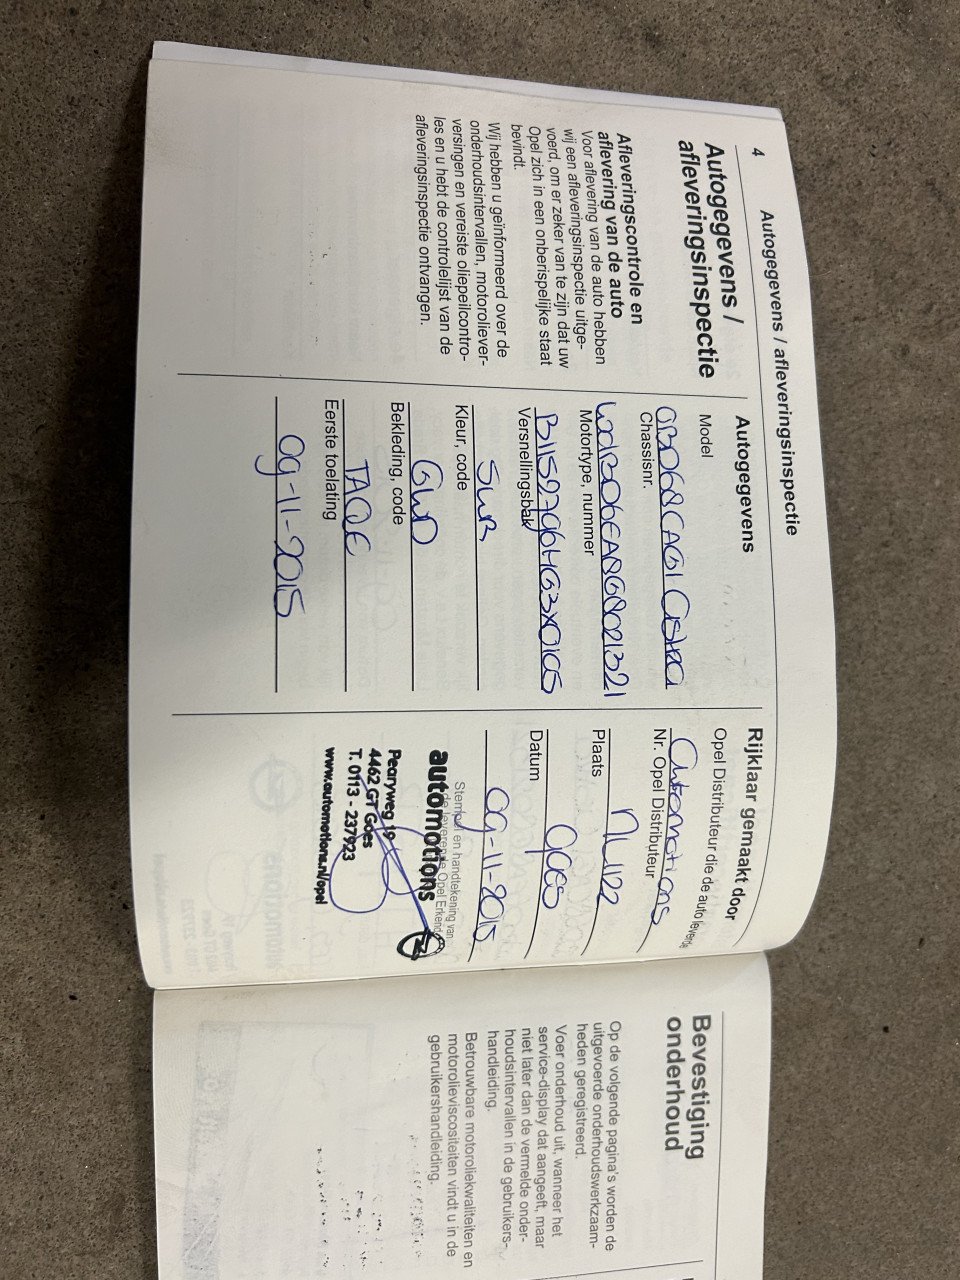 4
Autogegevens / afleveringsinspectie
Autogegevens /
afleveringsinspectie
Afleveringscontrole en
aflevering van de auto
Voor aflevering van de auto hebben
wij een afleveringsinspectie uitge-
voerd, om er zeker van te zijn dat uw
Opel zich in een onberispelijke staat
bevindt.
Wij hebben u geïnformeerd over de
onderhoudsintervallen, motoroliever-
versingen en vereiste oliepeilcontro-
les en u hebt de controlelijst van de
afleveringsinspectie ontvangen.
Autogegevens
Model
Chassisnr.
Motortype, nummer
Versnellingsbak
SWR
Kleur, code
GWD
Bekleding, code
Eerste toelating
09-11-2015
Rijklaar gemaakt door
Opel Distributeur die de auto leverde
Automotions
Nr. Opel Distributeur
NL1122
Plaats
goes
Datum
09-11-2015
Stempel en handtekening van
de leverende Opel Erkend
automotions
Pearyweg 19
4462 GT Goes
T. 0113 - 237923
www.automotions.nl/opel
Bevestiging
onderhoud
Op de volgende pagina's worden de
uitgevoerde onderhoudswerkzaam-
heden geregistreerd.
Voer onderhoud uit, wanneer het
service-display dat aangeeft, maar
niet later dan de vermelde onder-
houdsintervallen in de gebruikers-
handleiding.
Betrouwbare motoroliekwaliteiten en
motorolieviscositeiten vindt u in de
gebruikershandleiding.